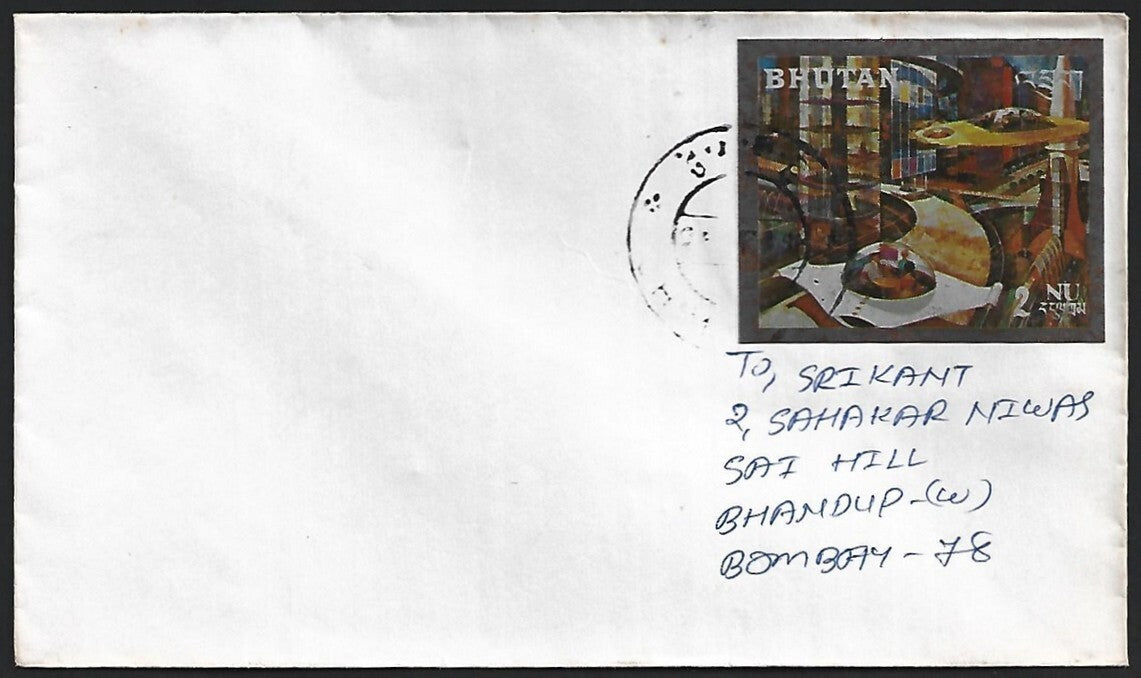 BHUTAN
འབྲུག
2 NU
དངུལ་ཀྲམ
To, SRIKANT
2, SAHAKAR NIWAS
SAI HILL
BHANDUP-(W)
BOMBAY - 78